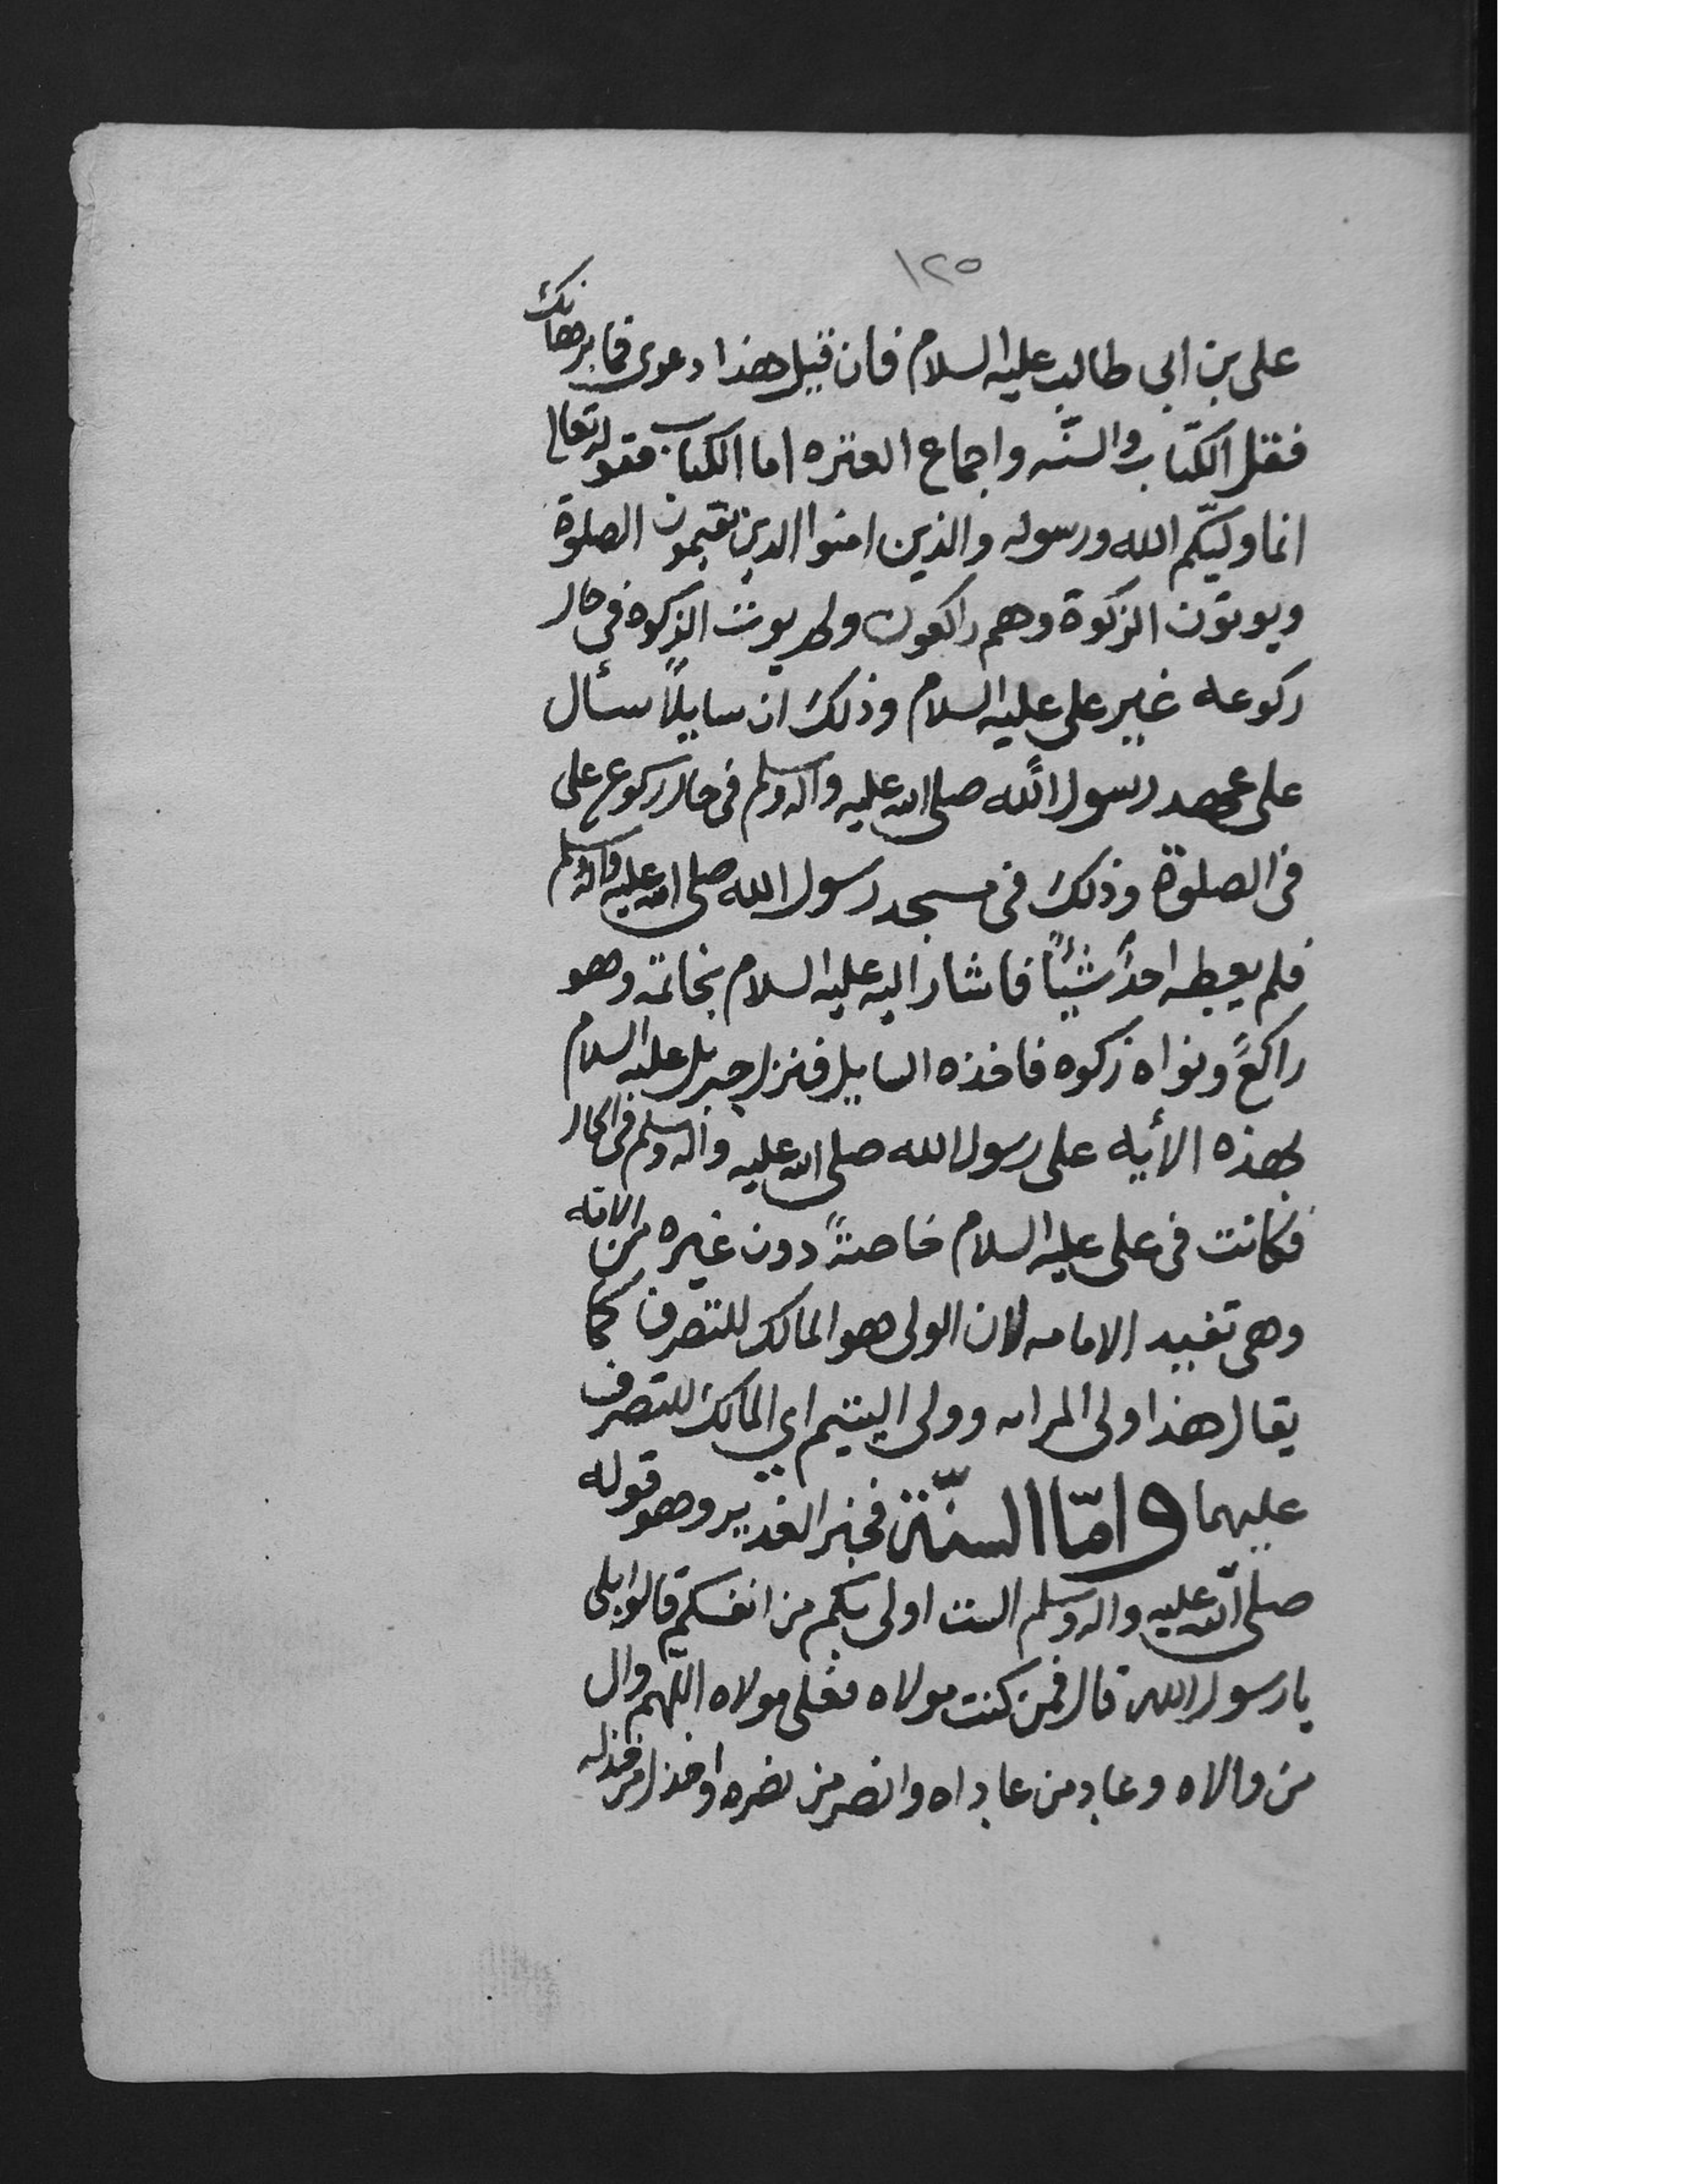 ١٢٥
على بن ابى طالب عليه السلام فان قيل هذا دعوى فما برهانك
فقل الكتاب والسنّه واجماع العتره اما الكتاب فقوله تعالى
انما وليّكم الله ورسوله والذين امنوا الذين يقيمون الصلوة
ويوتون الزكوة وهم راكعون ولم يوت الزكوه في حال
ركوعه غير علي عليه السلام وذلك ان سايلًا سأل
على عهد رسول الله صلى الله عليه واله وسلم فى حال ركوع على
فى الصلوة وذلك فى مسجد رسول الله صلى الله عليه واله وسلم
فلم يعطه احدٌ شيئًا فاشار اليه عليه السلام بخاتمه وهو
راكعً ونواه زكوه فاخذه السايل فنزل جبريل عليه السلام
بهذه الأيه على رسول الله صلى الله عليه واله وسلم فى الحال
فكانت فى على عليه السلام خاصةً دون غيره من الامه
وهى تفيد الامامه لان الولى هو المالك للتصرف كما
يقال هذا ولى المراه وولى اليتيم اي المالك للتصرف
عليهما وامّا السنّة فخبر الغدير وهو قوله
صلى الله عليه واله وسلم الست اولى بكم من انفسكم قالوا بلى
يارسول الله قال فمن كنت مولاه فعلى مولاه اللّهم وال
من والاه وعاد من عاداه وانصر من نصره واخذل من خذله